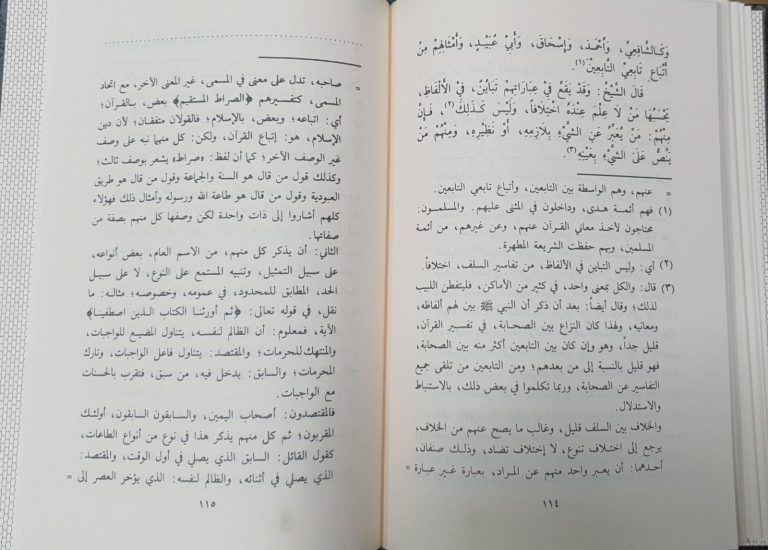 وَكَـالشَّافِعِيِّ، وَأَحْمَدَ، وَإِسْحَاقَ، وَأَبِيْ عُبَيْـدٍ، وَأَمْثَالِهِمْ مِنْ
أَتْبَاعِ تَابِعِيْ التَّابِعِيْنَ(١).
قَالَ الشَّيْخُ: وَقَدْ يَقَعُ فِيْ عِبَارَاتِهِمْ تَبَايُنٌ، فِيْ الْأَلْفَاظِ،
يَحْسَبُهَا مَنْ لَا عِلْمَ عِنْدَهُ اخْتِلَافاً، وَلَيْسَ كَـذَلِكَ(٢)، فَـإِنَّ
مِنْهُمْ: مَنْ يُعَبِّرُ عَنِ الشَّيْءِ بِلَازِمِهِ، أَوْ نَظِيْرِهِ، وَمِنْهُمْ مَنْ
يَنُصُّ عَلَىَ الشَّيْءِ بِعَيْنِهِ(٣).
= عنهم، وهم الواسطة بين التابعين، وأتباع تابعي التابعين.
(١) فهم أئمـة هـدى، وداخلون في المثنى عليهم. والمسلمـون: محتاجون لأخـذ معاني القـرآن عنهم، وعن غيرهم، من أئمـة المسلمين، وبهم حفظت الشريعة المطهرة.
(٢) أي: وليس التباين في الألفاظ، من تفاسير السلف، اختلافاً.
(٣) قال: والكل بمعنى واحد، في كثير من الأماكن، فليتفطن اللبيب
لذلك؛ وقال أيضاً: بعد أن ذكر أن النبي ﷺ بين لهم ألفاظه،
ومعانيه، ولهذا كان النزاع بين الصحـابة، في تفسـير القرآن،
قليل جداً، وهو وإن كان بين التابعين أكثر منه بين الصحابة،
فهو قليل بالنسبة إلى من بعدهم؛ ومن التابعين من تلقى جميع
التفاسير عن الصحابة، وربما تكلموا في بعض ذلك، بالاستنباط
والاستدلال.
والخلاف بين السلف قليل، وغالب ما يصح عنهم من الخلاف،
يرجع إلى اختـلاف تنوع، لا إختلاف تضاد، وذلـك صنفان،
أحـدهمـا: أن يعـبر واحد منهم عن المـراد، بعبارة غـير عبارة =
١١٤
= صاحبه، تدل على معنى في المسمى، غير المعنى الآخر، مع اتحاد
المسمى، كتفسيرهم ﴿الصراط المستقيم﴾ بعض، بـالقرآن؛
أي: اتباعه؛ وبعض، بالإسلام؛ فالقولان متفقـان؛ لأن دين
الإسلام، هو: إتباع القرآن، ولكن: كل منهما نبه على وصف
غير الوصف الآخر؛ كما أن لفظ: «صراط» يشعر بوصف ثالث؛
وكذلك قول من قال هو السنة والجماعة وقول من قال هو طريق
العبودية وقول من قال هو طاعة الله ورسوله وأمثال ذلك فهؤلاء
كلهم أشاروا إلى ذات واحدة لكن وصفها كل منهم بصفة من
صفاتها.
الثاني: أن يذكر كل منهم، من الاسم العام، بعض أنواعه،
على سبيل التمثيل، وتنبيه المستمع على النوع، لا على سبيـل
الحد، المطابق للمحدود، في عمومه، وخصوصـه؛ مثالـه: ما
نقل، في قوله تعالى: ﴿ثم أورثنا الكتاب الـذين اصطفينا﴾
الآية، فمعلوم: أن الظالم لنفسه، يتناول المضيع للواجبات،
والمنتهك للحرمات؛ والمقتصد: يتناول فاعل الواجبات، وتارك
المحرمات؛ والسابق: يدخل فيه، من سبق، فتقرب بالحسنات
مع الواجبات.
فالمقتصدون: أصحاب اليمين، والسـابقون السابقون، أولئـك
المقربون؛ ثم كل منهم يذكر هذا في نوع من أنواع الطاعات،
كقول القائل: السابق الذي يصلي في أول الوقت، والمقتصد:
الذي يصلي في أثنائه، والظالم لنفسه: الذي يؤخر العصر إلى =
١١٥